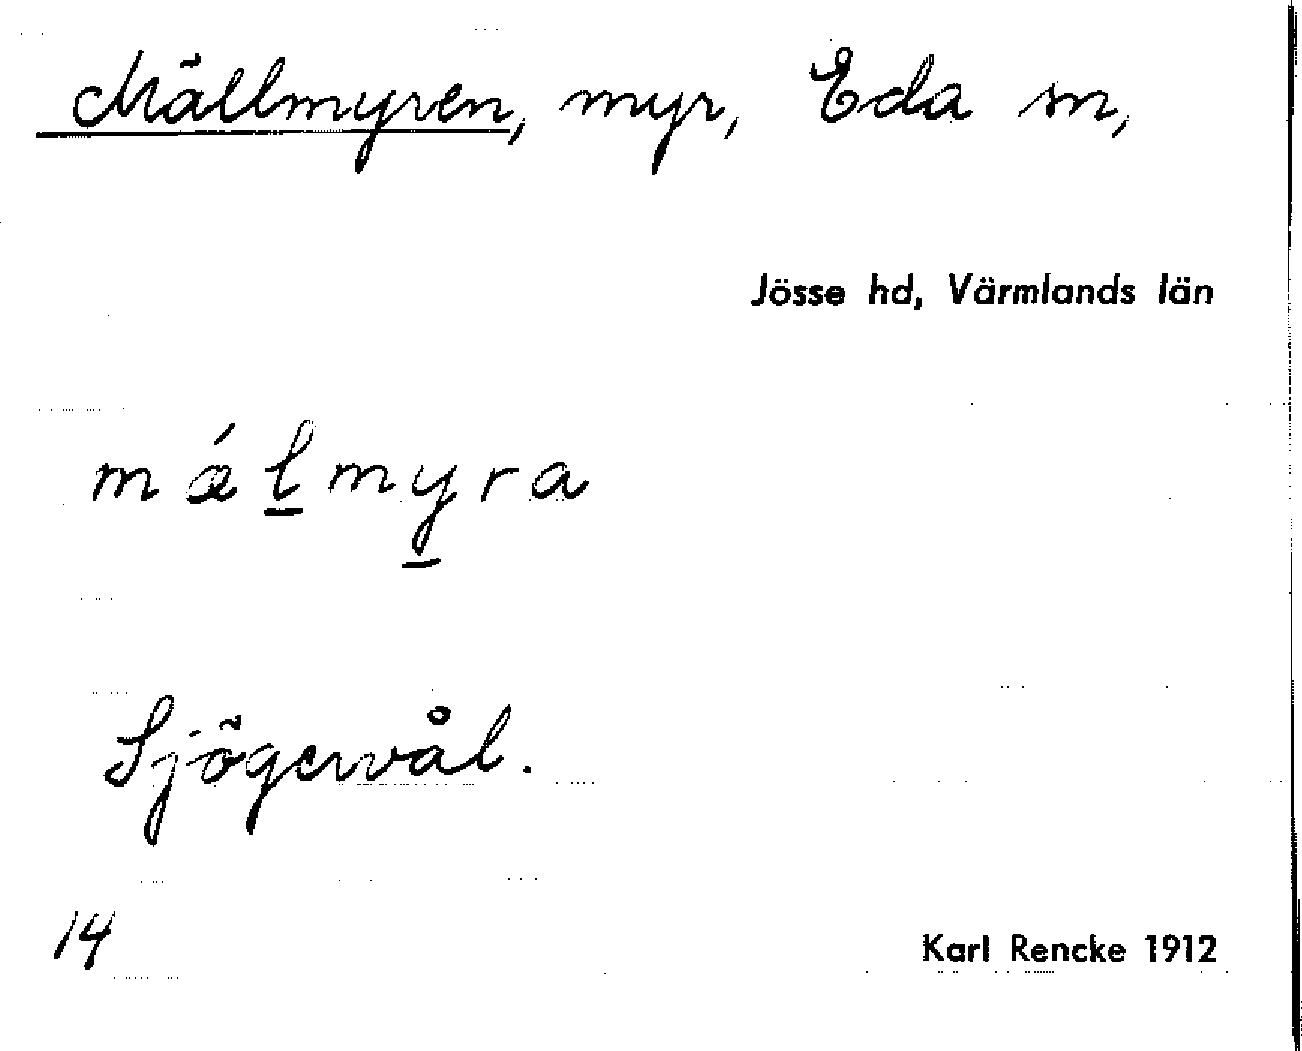 Mällmyren, myr, Eda sn,
Jösse hd, Värmlands län
mǽl̲my̲ra
Sjögervål.
14
Karl Rencke 1912